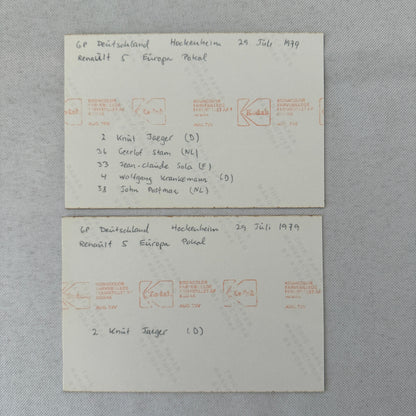 GP Deutschland Hockenheim 29 Juli 1979
Renault 5 Europa Pokal
Kodak
AUG.79V
2 Knut Jaeger (D)
36 Geerlof Stam (NL)
33 Jean-Claude Sola (F)
4 Wolfgang Krankemann (D)
38 John Postmae (NL)
GP Deutschland Hockenheim 29 Juli 1979
Renault 5 Europa Pokal
Kodak
AUG.79V
2 Knut Jaeger (D)